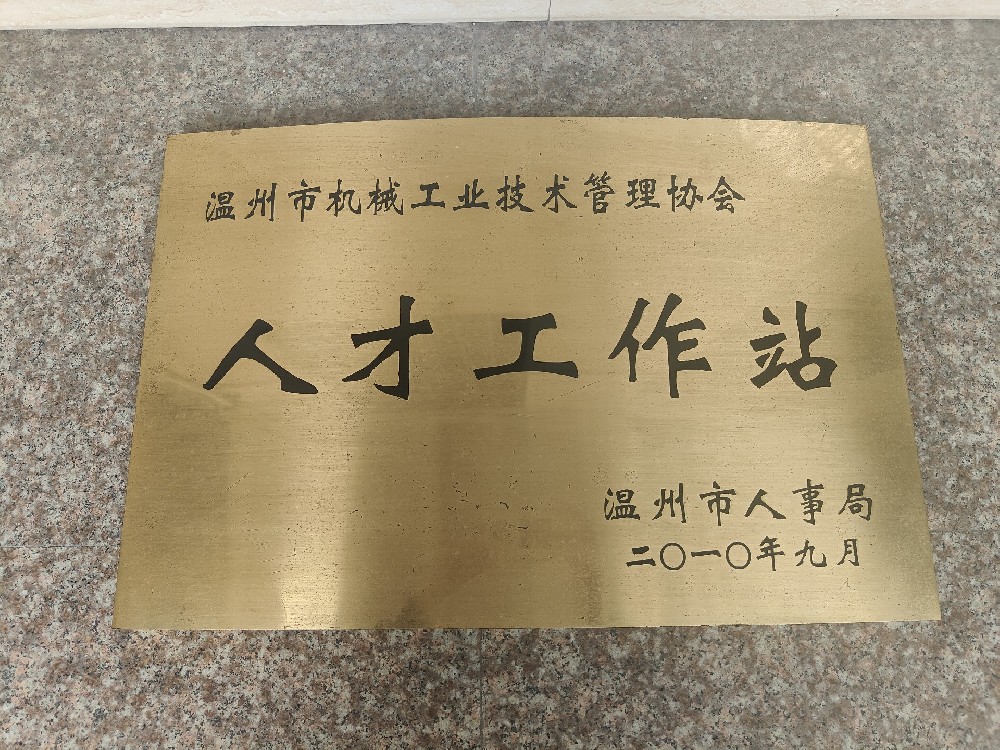 温州市机械工业技术管理协会
人才工作站
温州市人事局
二〇一〇年九月